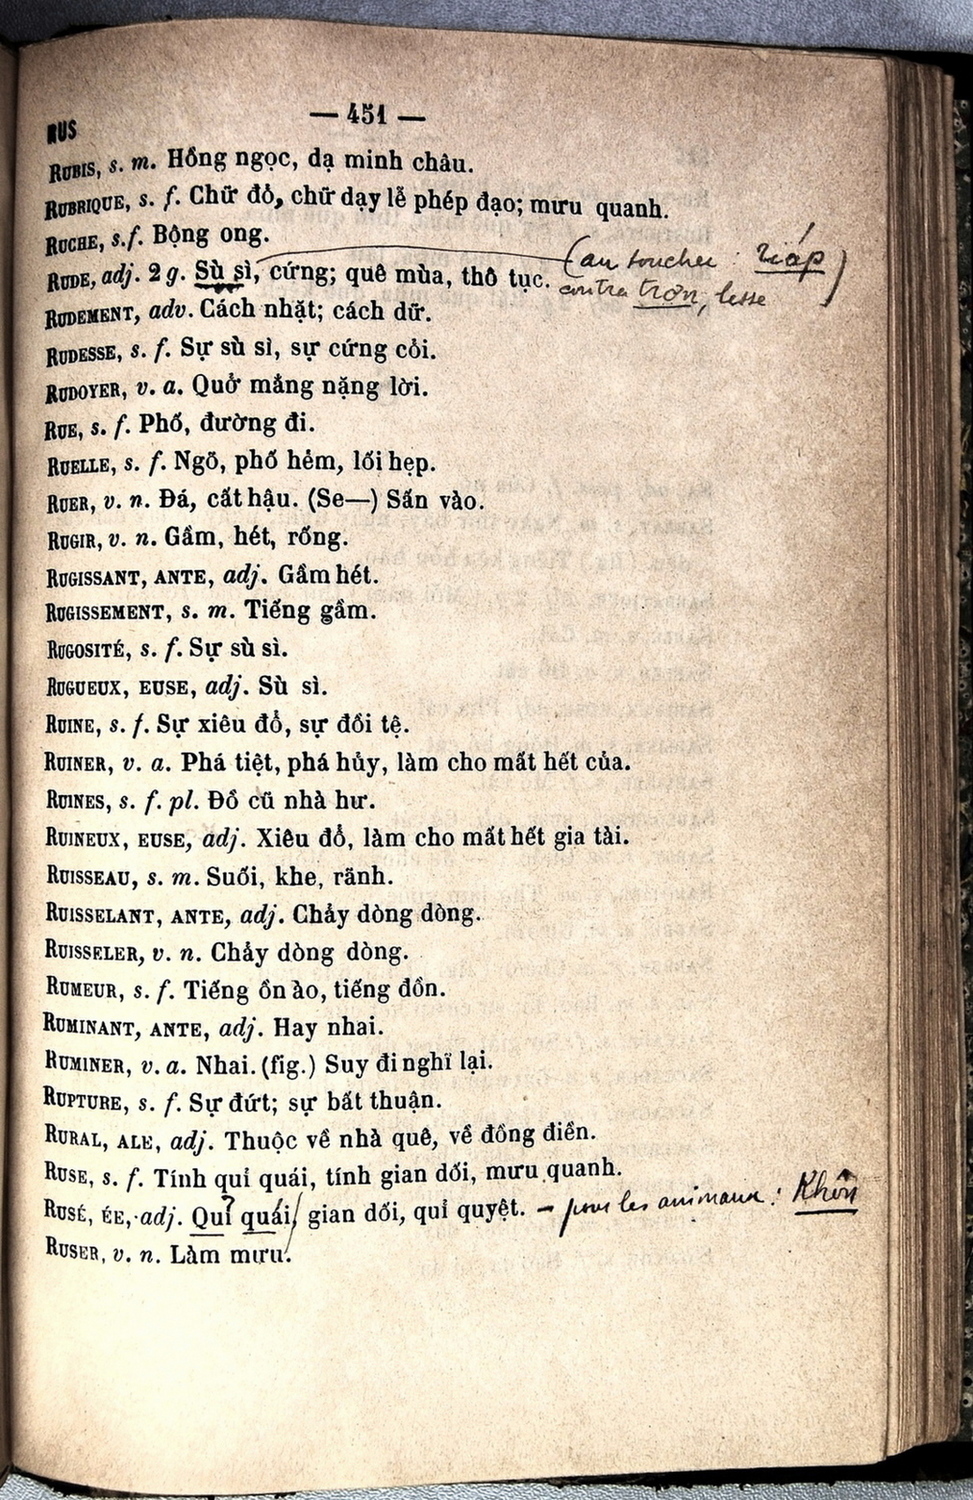 RUS
— 451 —
RUBIS, s. m. Hồng ngọc, dạ minh châu.
RUBRIQUE, s. f. Chữ đỏ, chữ dạy lễ phép đạo; mưu quanh.
RUCHE, s.f. Bộng ong.
RUDE, adj. 2 g. Sù sì, cứng; quê mùa, thô tục. (au toucher : ráp)
contra trơn, lisse
RUDEMENT, adv. Cách nhặt; cách dữ.
RUDESSE, s. f. Sự sù sì, sự cứng cỏi.
RUDOYER, v. a. Quở mắng nặng lời.
RUE, s. f. Phố, đường đi.
RUELLE, s. f. Ngõ, phố hẻm, lối hẹp.
RUER, v. n. Đá, cất hậu. (Se—) Sấn vào.
RUGIR, v. n. Gầm, hét, rống.
RUGISSANT, ANTE, adj. Gầm hét.
RUGISSEMENT, s. m. Tiếng gầm.
RUGOSITÉ, s. f. Sự sù sì.
RUGUEUX, EUSE, adj. Sù sì.
RUINE, s. f. Sự xiêu đổ, sự đồi tệ.
RUINER, v. a. Phá tiệt, phá hủy, làm cho mất hết của.
RUINES, s. f. pl. Đồ cũ nhà hư.
RUINEUX, EUSE, adj. Xiêu đổ, làm cho mất hết gia tài.
RUISSEAU, s. m. Suối, khe, rãnh.
RUISSELANT, ANTE, adj. Chảy dòng dòng.
RUISSELER, v. n. Chảy dòng dòng.
RUMEUR, s. f. Tiếng ồn ào, tiếng đồn.
RUMINANT, ANTE, adj. Hay nhai.
RUMINER, v. a. Nhai. (fig.) Suy đi nghĩ lại.
RUPTURE, s. f. Sự đứt; sự bất thuận.
RURAL, ALE, adj. Thuộc về nhà quê, về đồng điền.
RUSE, s. f. Tính quỉ quái, tính gian dối, mưu quanh.
RUSÉ, ÉE, adj. Quỉ quái, gian dối, quỉ quyệt. — pour les animaux : Khôn
RUSER, v. n. Làm mưu.